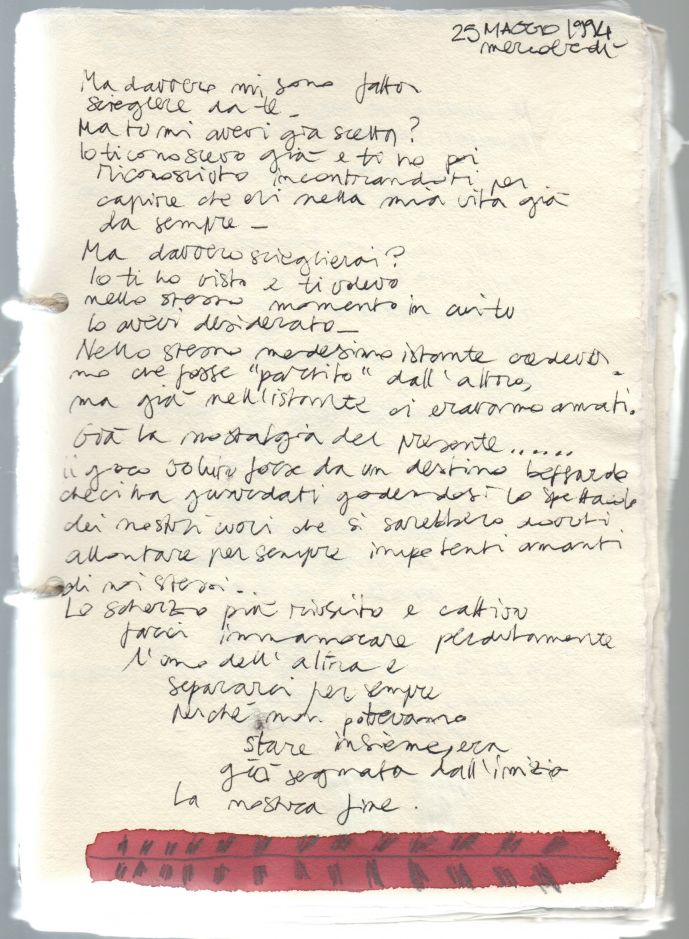 25 MAGGIO 1994
mercoledì
Ma davvero mi sono fatto
scegliere da te_
Ma tu mi avevi già scelto?
Io ti conoscevo già e ti ho poi
riconosciuto incontrandoti per
capire che eri nella mia vita già
da sempre_
Ma davvero sceglierai?
Io ti ho visto e ti volevo
nello stesso momento in cui tu
lo avevi desiderato_
Nello stesso medesimo istante credeva-
mo che fosse "partito" dall'altro,
ma già nell'istante ci eravamo amati.
Già la nostalgia del presente......
il gioco voluto forse da un destino beffardo
che ci ha guardati godendosi lo spettacolo
dei nostri cuori che si sarebbero dovuti
allontare per sempre impotenti amanti
di noi stessi...
Lo scherzo più riuscito e cattivo
farci innamorare perdutamente
l'uno dell'altra e
separarci per sempre
perché non potevamo
stare insieme, era
già segnata dall'inizio
la nostra fine.